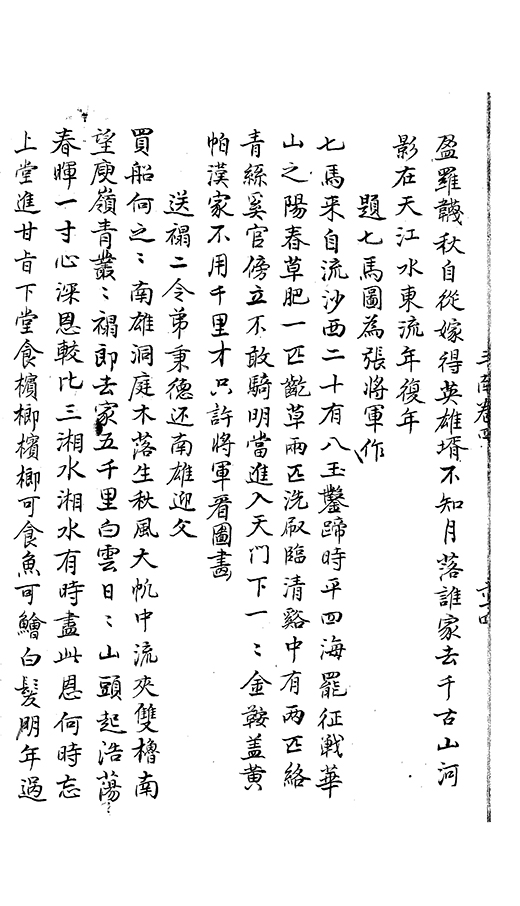 盈羅韈秋自從嫁得英雄壻不知月落誰家去千古山河
影在天江水東流年復年
題七馬圖為張將軍作
七馬来自流沙西二十有八玉鑿蹄時平四海罷征戰華
山之陽春草肥一匹齕草兩匹洗刷臨清谿中有兩匹絡
青絲奚官傍立不敢騎明當進入天门下一〻金鞍盖黄
帕漢家不用千里才只許將軍看圖畫
送禤二令弟秉德还南雄迎父
買船何之〻南雄洞庭木落生秋風大帆中流夾雙櫓南
望庾嶺青叢〻禤郎去家五千里白雲日〻山頭起浩蕩
春暉一寸心深恩較比三湘水湘水有時盡此恩何時忘
上堂進甘旨下堂食檳榔檳榔可食魚可鱠白髮明年過